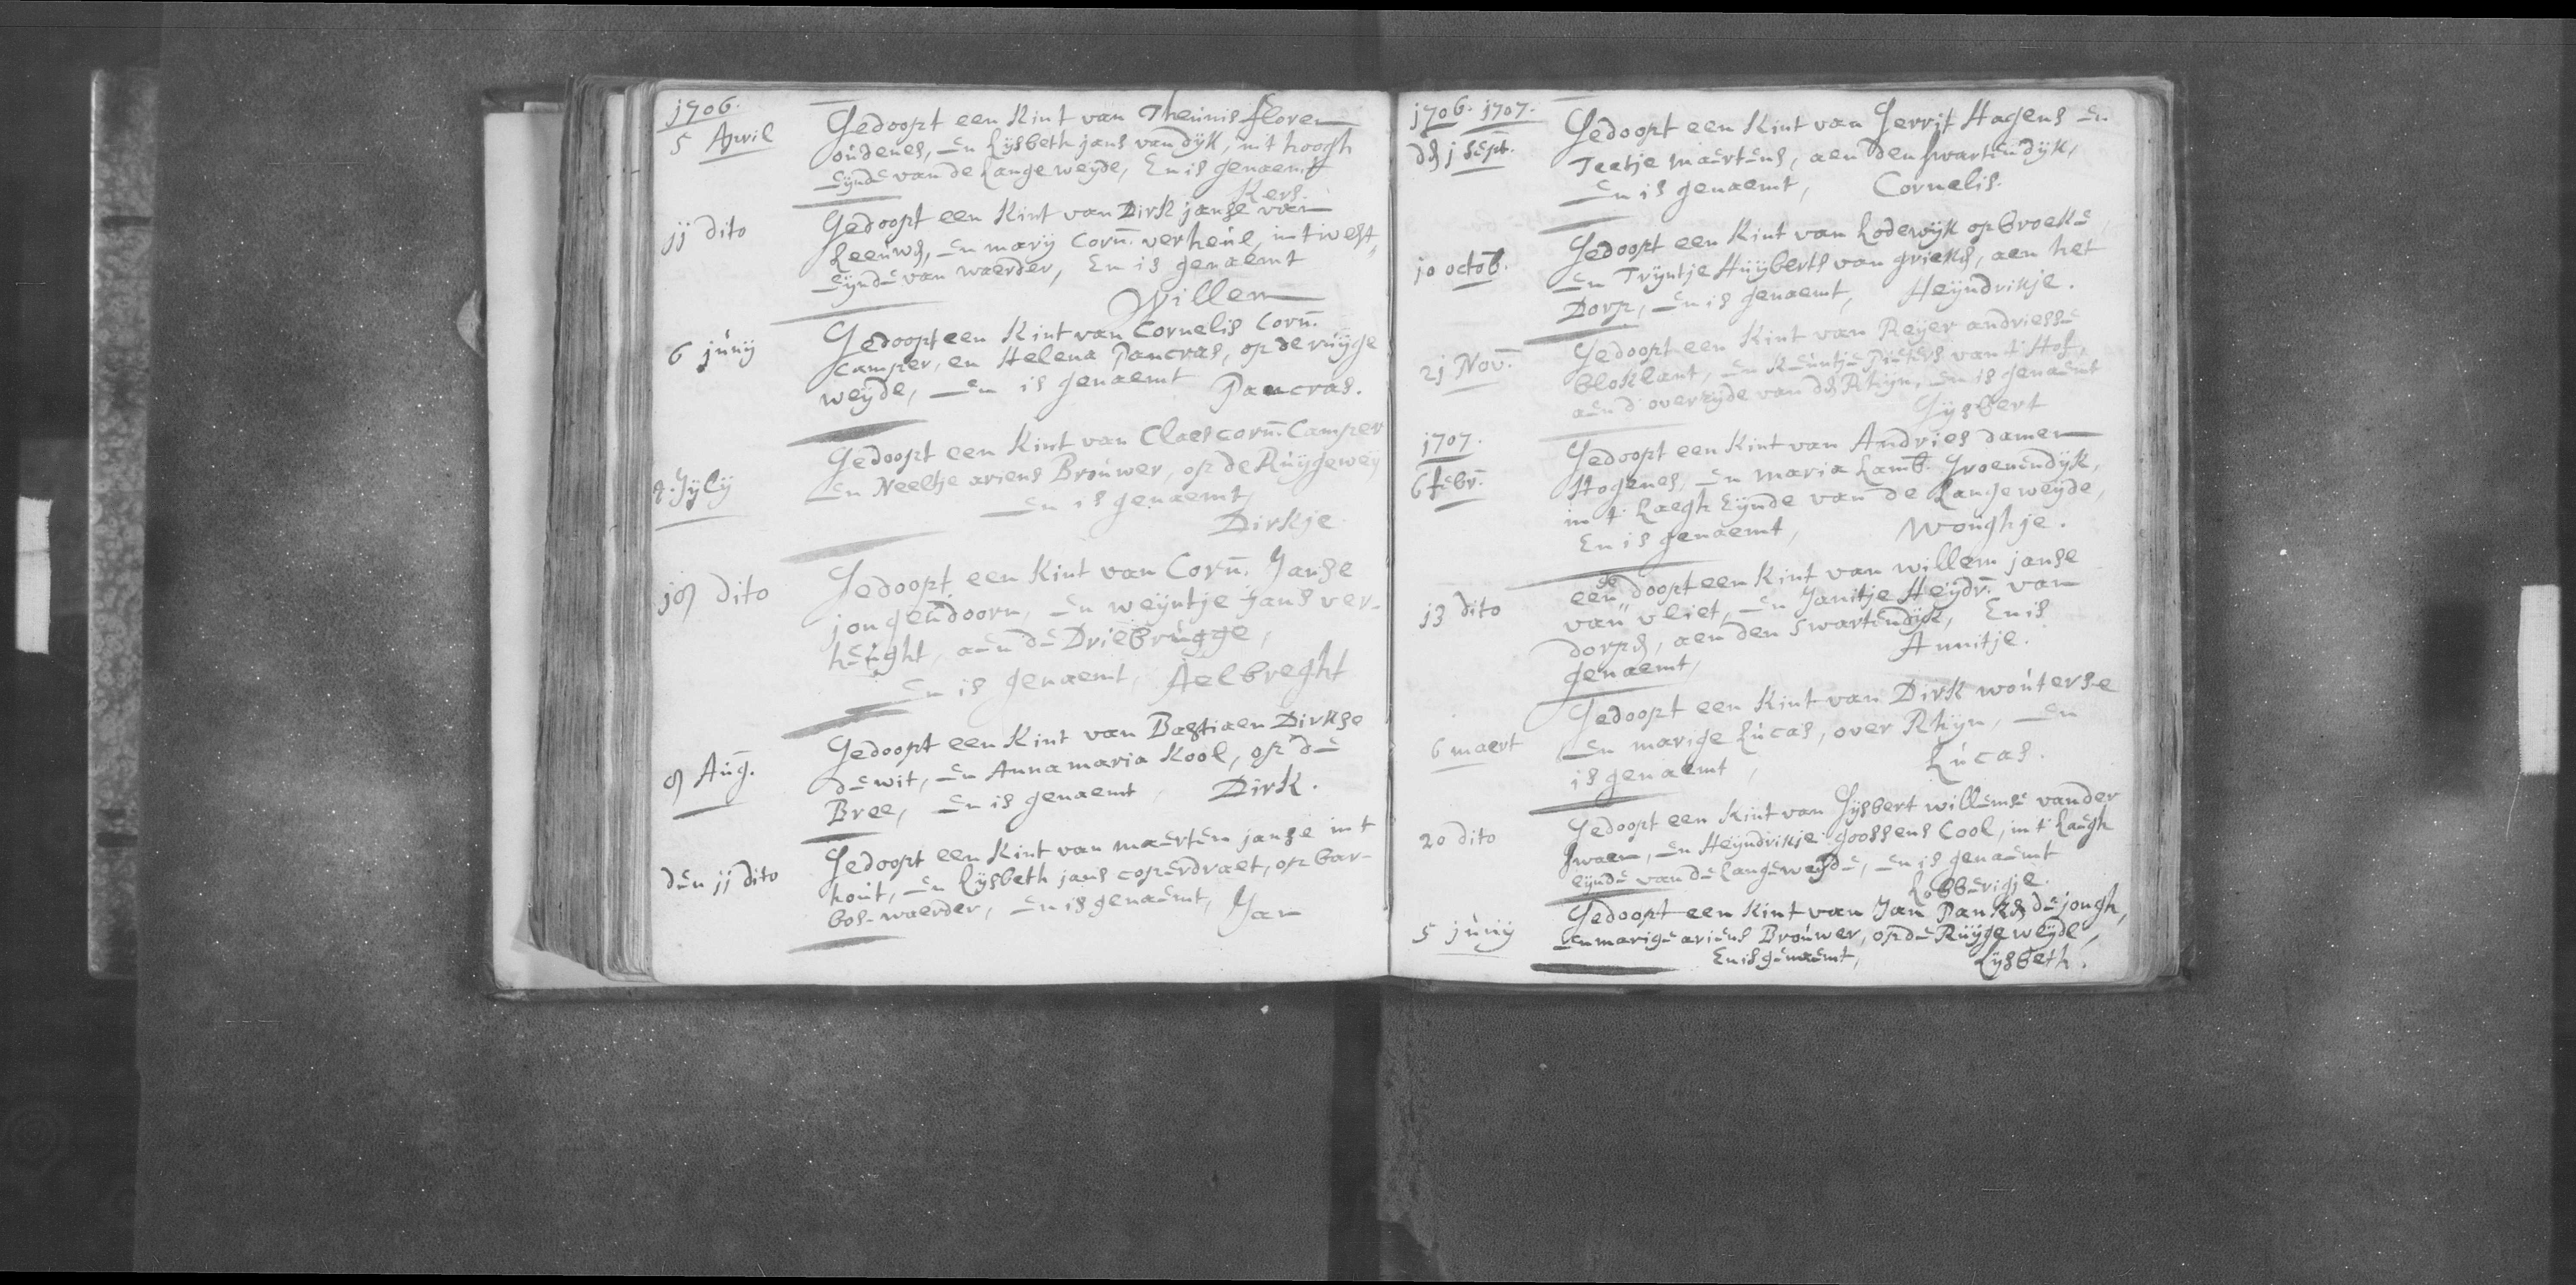 1706.
5 April
Gedoopt een Kint van Theunis floren
oudenes, en Lijsbeth jans van dijk, int hoogh
eynde van de Langeweyde, En is genaemt
Kers.
jj dito
Gedoopt een Kint van Dirk janse van
Leeuwen, en marij Corn. verheul, int west-
eynde van waerder, En is genaemt
Willem
6 junij
Gedoopt een Kint van Cornelis Corn.
Camper, en Helena Pancras, op de ruijge
weyde, en is genaemt Pancras.
Jylij
Gedoopt een Kint van Claes corn. Camper
en Neeltje ariens Brouwer, op de Ruijgewey
en is genaemt,
Dirkje
j9 dito
Gedoopt een Kint van Corn. Janse
jongendoorn, en weijntje Jans ver-
heught, aen de Driebrugge,
En is genaemt, Aelbreght
9 Aug.
Gedoopt een Kint van Bastiaen Dirkse
de wit, en Anna maria Kool, op de
Bree, en is genaemt, Dirk.
den jj dito
Gedoopt een Kint van maerten janse int
hout, en Lijsbeth jans coperdraet, op bar-
bos-waerder, en is genaemt, Jan
1706. 1707.
den j Sept.
Gedoopt een Kint van Gerrit Hagens en
Teetje maertens, aen den swartendijk,
en is genaemt, Cornelis.
jo octob.
Gedoopt een Kint van Lodewijk op broeke
en Trijntje Huijberts van grieken, aen het
Dorp, en is genaemt, Heijndrikje.
2j Nov.
Gedoopt een Kint van Reijer andriesse
bloklant, en Neuntje Pieters van t Hof,
aen d overzyde van den Rhijn, en is genaemt
Gijsbert
1707.
6 febr.
Gedoopt een Kint van Andries damen
Hogenes, en maria Lamb. Groenendijk,
in t Laegh Eynde van de Langeweyde,
En is genaemt, Woughje.
j3 dito
ge
een doopt een Kint van willem janse
van vliet, en Jannitje Heydr. van
dorpen, aen den Swartendijk, En is
genaemt, Annitje.
6 maert
Gedoopt een Kint van Dirk wouterse
en marige Lucas, over Rhijn, en
is genaemt, Lucas.
20 dito
Gedoopt een Kint van Gijsbert willemse vander
swaen, en Heyndrikje goossens Cool, in t Laegh
eynde van de Langeweyde, en is genaemt
Lobberigje.
5 junij
Gedoopt een Kint van Jan Panken de jongh,
en marige ariens Brouwer, op de Ruijge weyde,
En is genaemt, Lijsbeth.